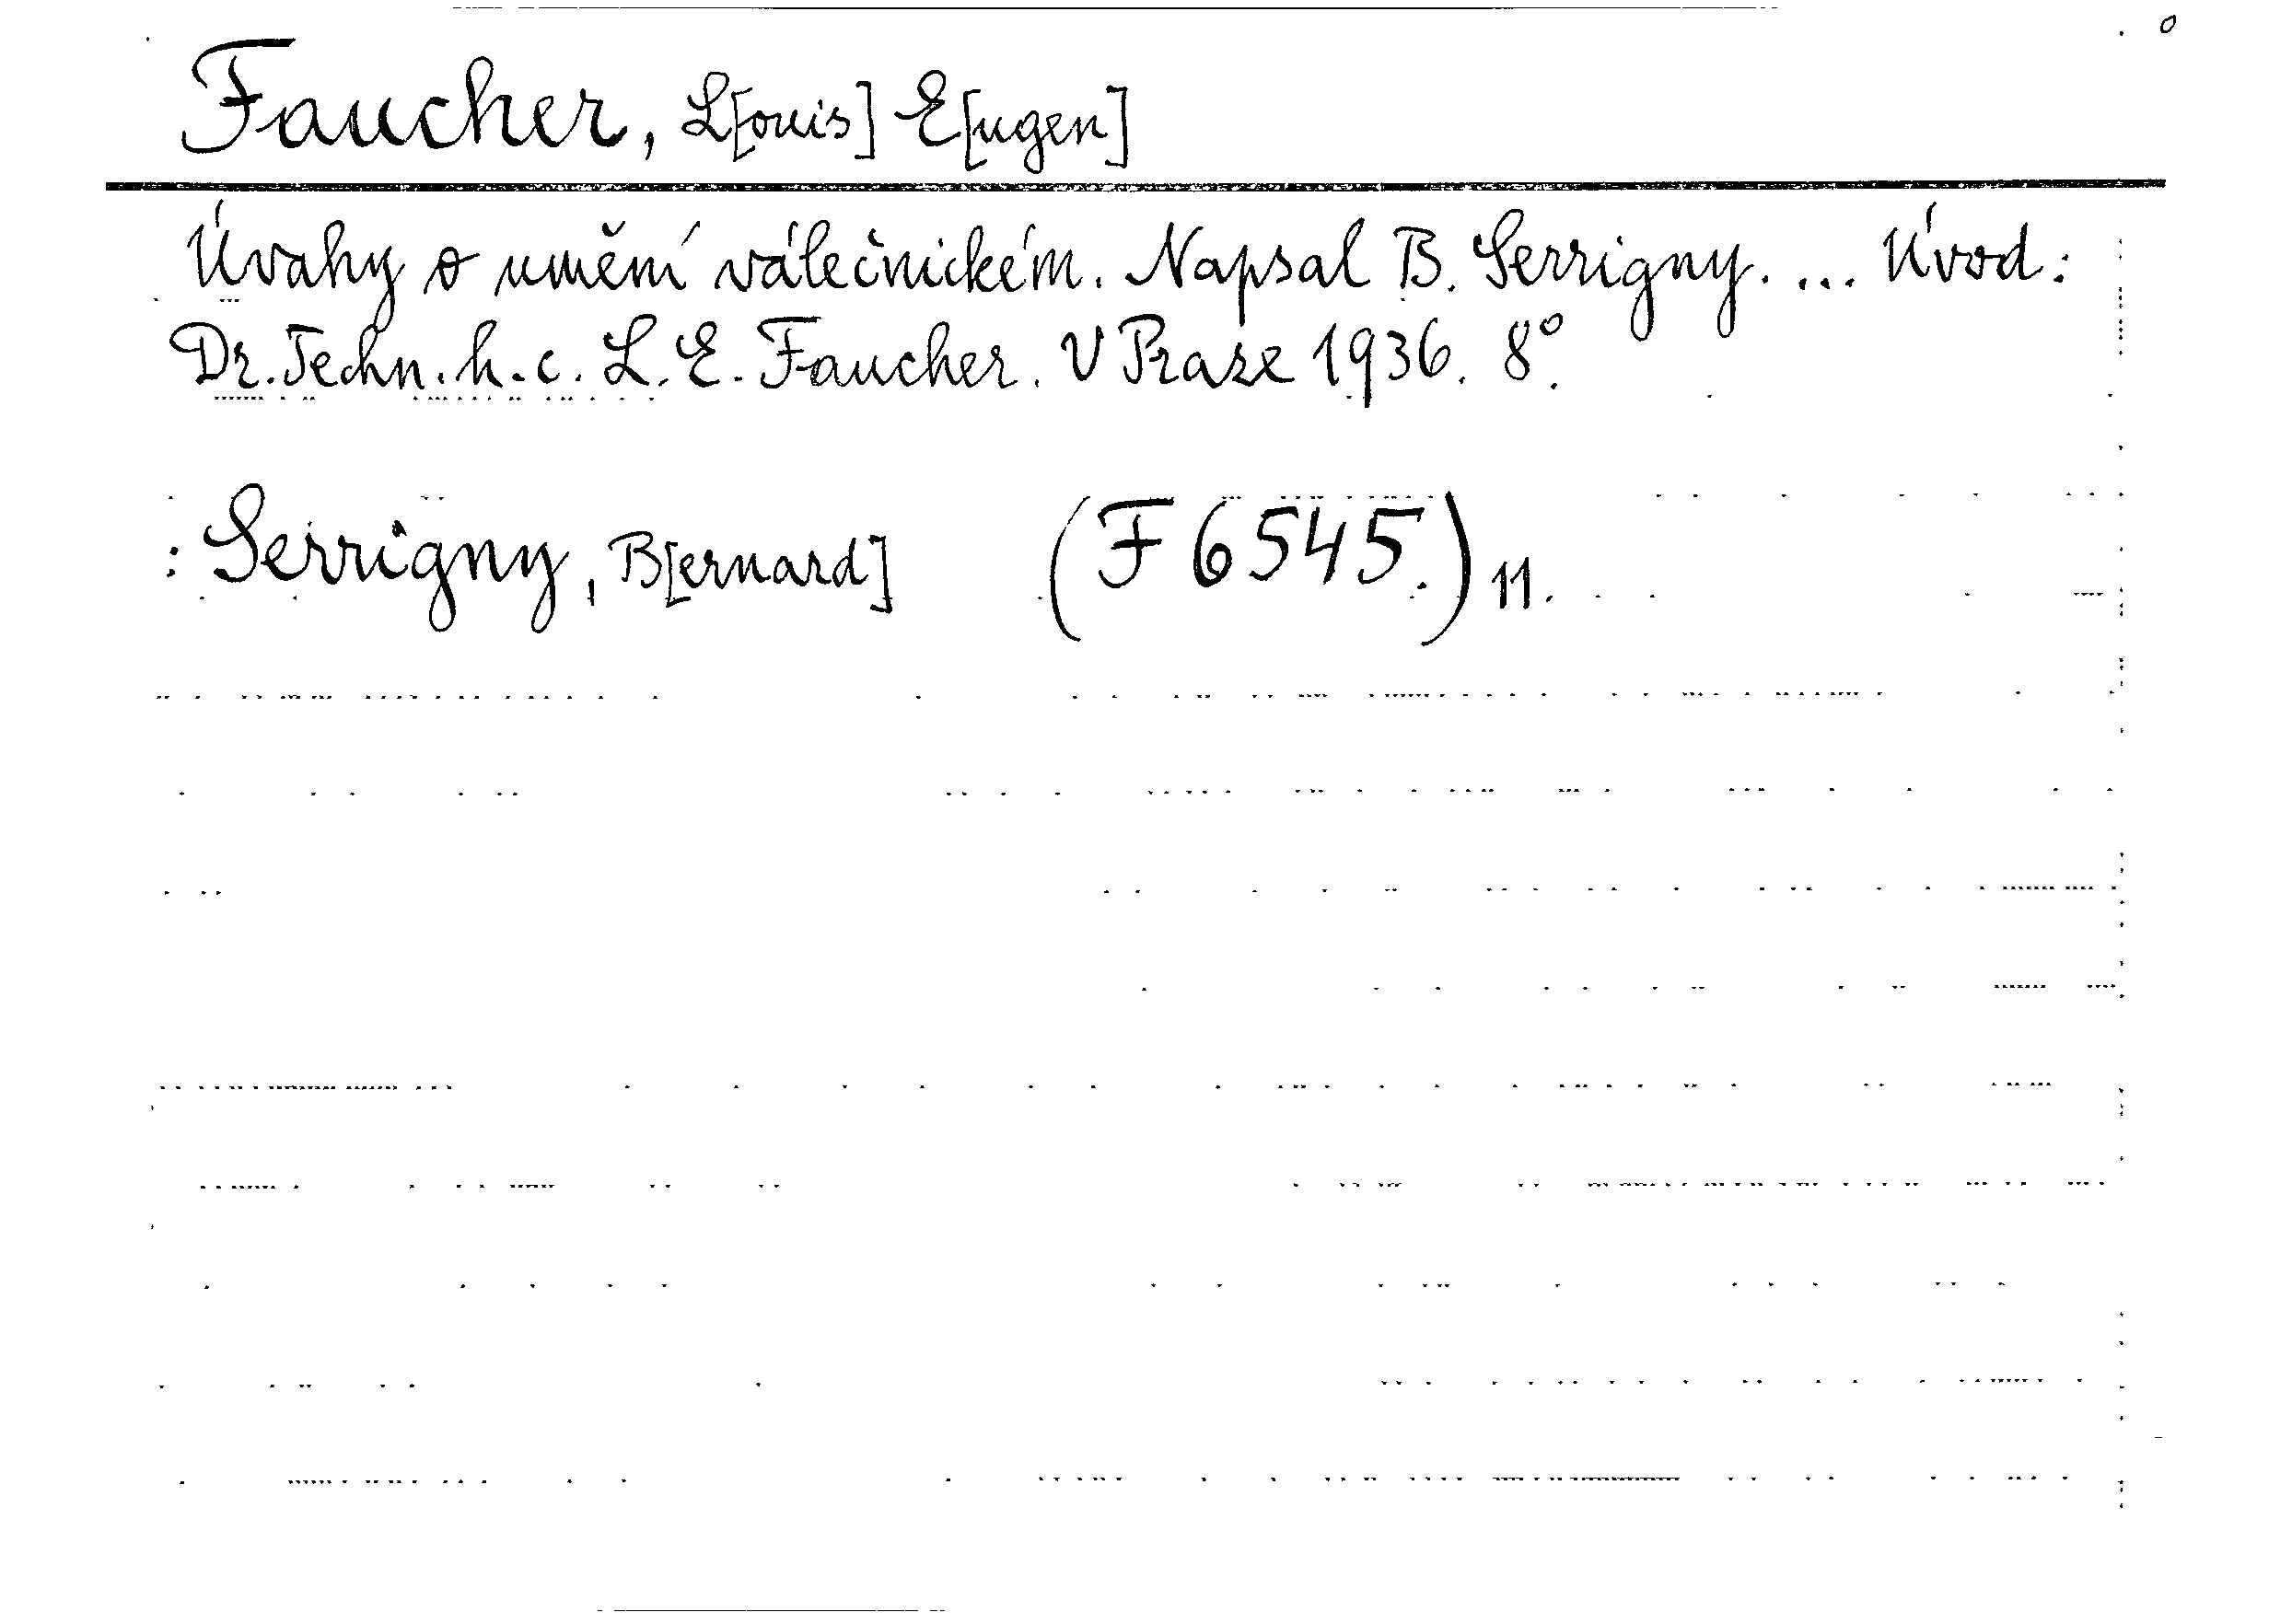 Faucher, L[ouis] E[ugen]
Úvahy o umění válečnickém. Napsal B. Serrigny. ... Úvod:
Dr. Techn. h. c. L. E. Faucher. V Praze 1936. 8°.
: Serrigny, B[ernard] (F 6545.) 11.